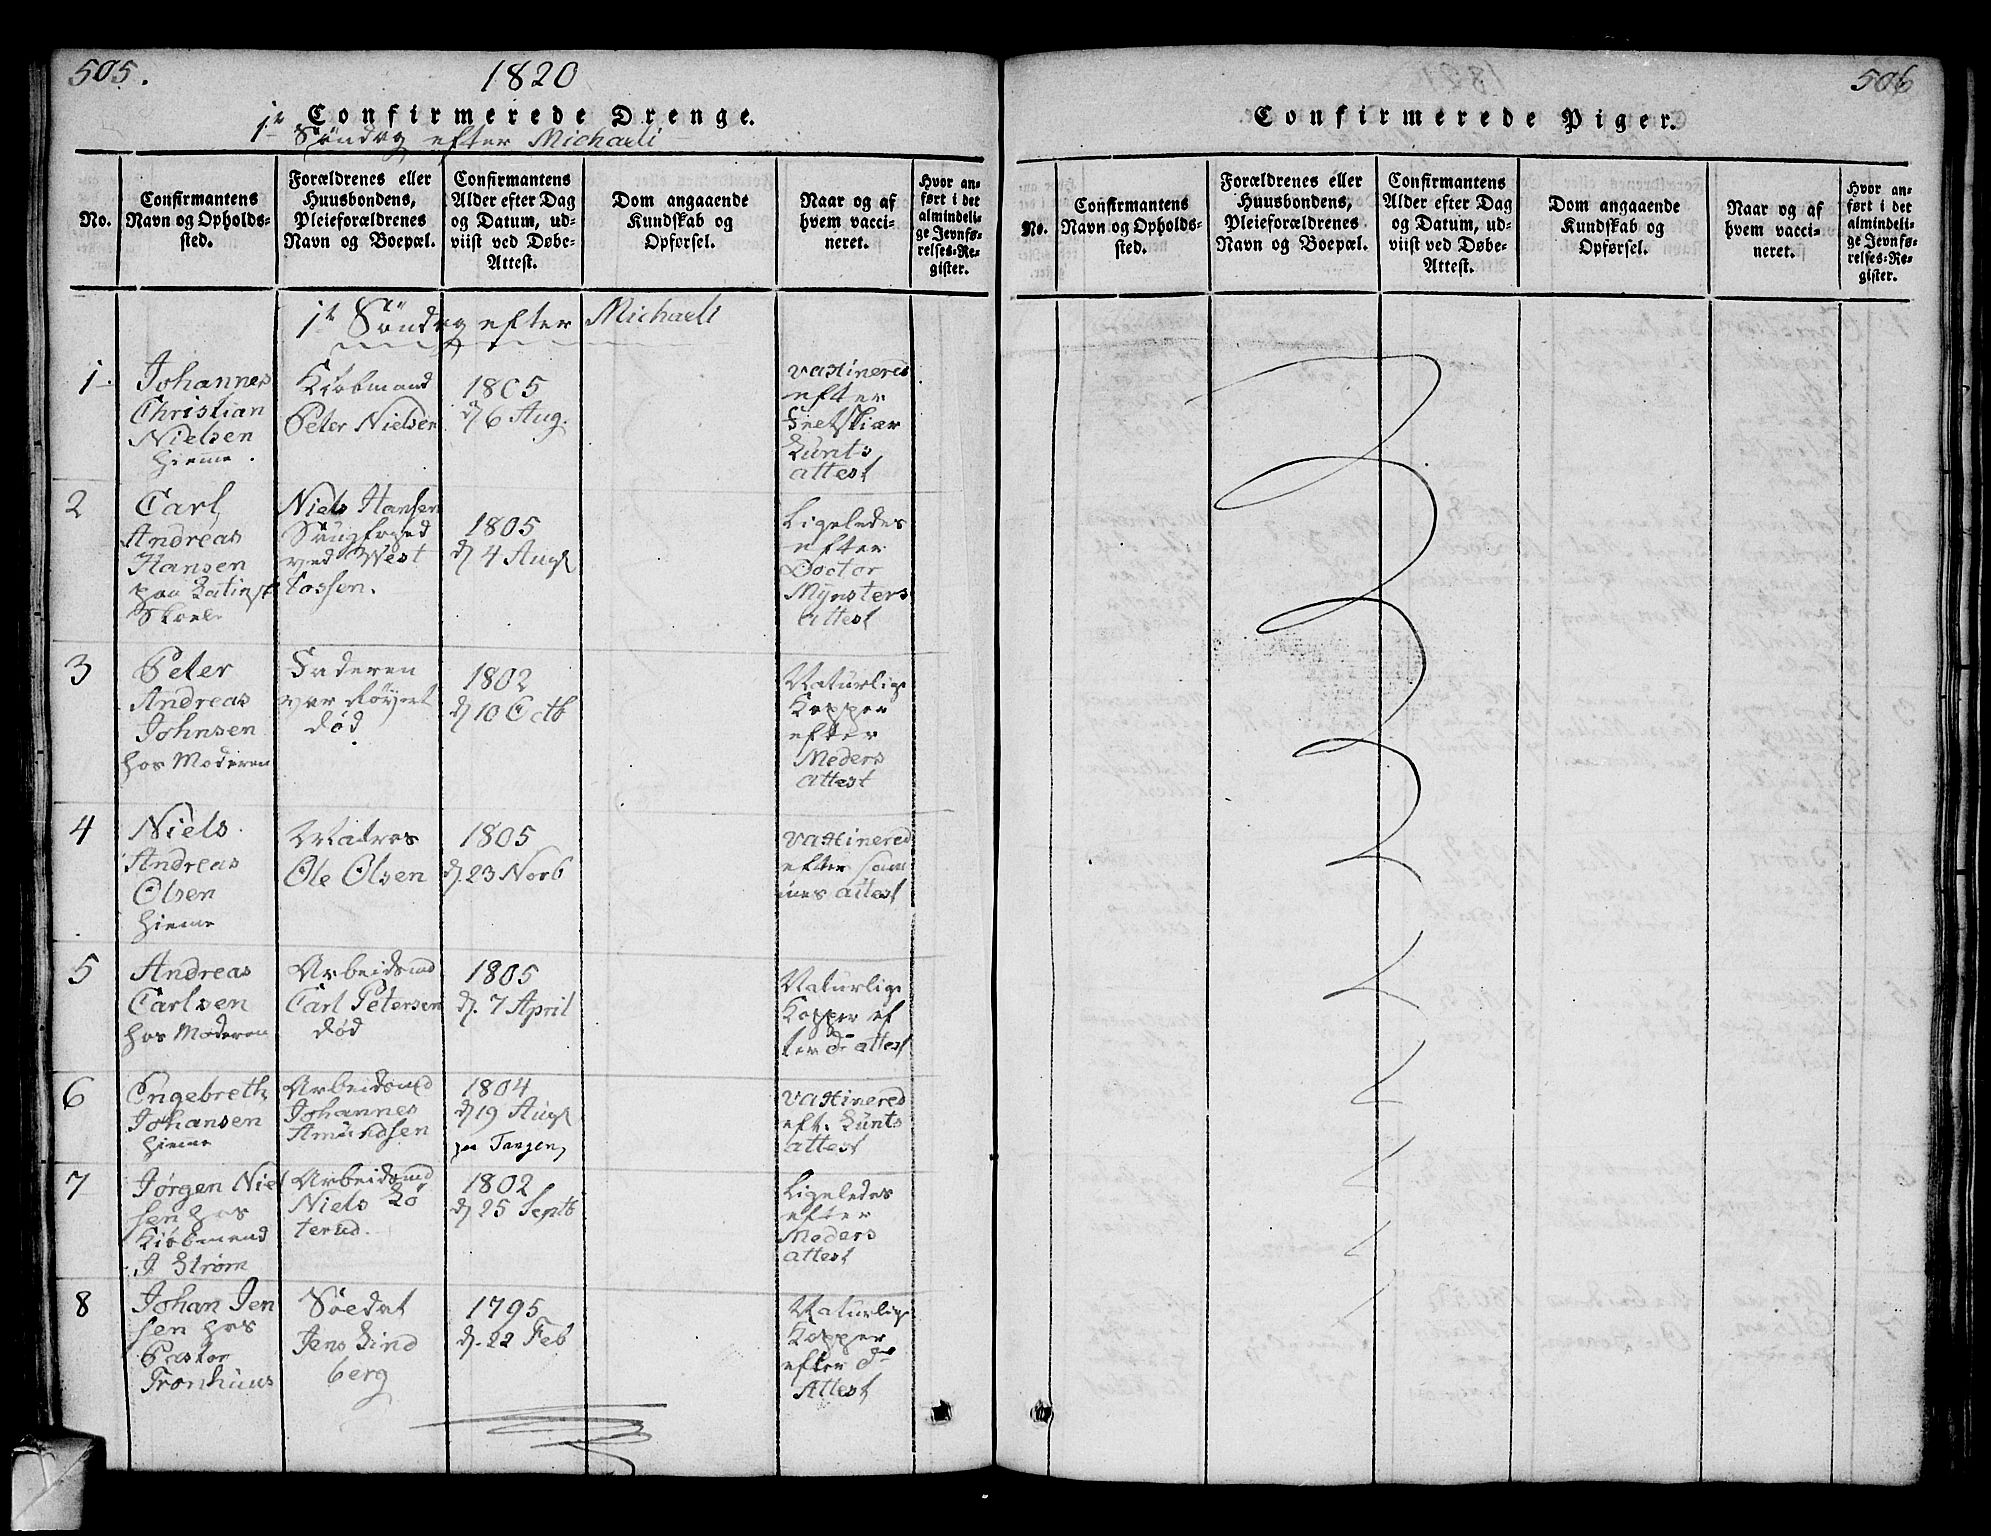 505.
1820
Confirmerede Drenge.
1te Söndag efter Michaeli
No.
Confirmantens
Navn og Opholds-
sted.
Forældrenes eller
Huusbondens,
Pleieforældrenes
Navn og Boepæl.
Confirmantens
Alder efter Dag
og Datum, ud-
viist ved Døbe-
Attest.
Dom angaaende
Kundskab og
Opførsel.
Naar og af
hvem vacci-
neret.
Hvor an-
ført i det
almindeli-
ge Jevnfø-
relses-Re-
gister.
1te Söndag efter Michaeli
1.
Johannes
Christian
Nielsen
hieme.
Kiøbmand
Peter Nielsen
1805
d 6 Aug.
vaxinered
efter
Kunts
attest
2
Carl
Andreas
Hansen
paa Latinsk
Skoele
Niels Hansen
ved West
Fossen.
1805
d 4 Augs
Ligeledes
efter
Doctor
Mÿnsters
attest
3
Peter
Andreas
Johnsen
hos Moderen
Faderen
var
død
1802
d 10 Octb
Naturlige
Kopper
efter
Meders
attest
4
Niels
Andreas
Olsen
hieme
Matros
Ole Olsen
1805
d. 23 Novb
vaxinered
efter sam
mes attest
5
Andreas
Carlsen
hos Moderen
Arbeidsmd
Carl Petersen
død
1805
d. 7 April
Naturlige
Kopper ef
ter do attest
6
Engebreth
Johansen
hieme
Arbeidsmd
Johannes
Amundsen
1804
d 19 Augs
paa Tangen
vaxinered
eft. Kunts
attest
7
Jørgen Niel
sen hos
Kiøbmand
J. Strøm
Arbeidsmd
Niels Lö
terud.
1802
d 25 Septb
Ligeledes
efter
Meders
attest
8
Johan Jen
sen hos
Pastor
Tronhuus
Soldat
Jens Lind
berg
1795
d. 22 Feb
Naturlige
Kopper
efter do
Attest
506
Confirmerede Piger.
No.
Confirmantens
Navn og Opholds-
sted.
Forældrenes eller
Huusbondens,
Pleieforældrenes
Navn og Boepæl.
Confirmantens
Alder efter Dag
og Datum, ud-
viist ved Døbe-
Attest.
Dom angaaende
Kundskab og
Opførsel.
Naar og af
hvem vacci-
neret.
Hvor an-
ført i det
almindeli-
ge Jevnfø-
relses-Re-
gister.